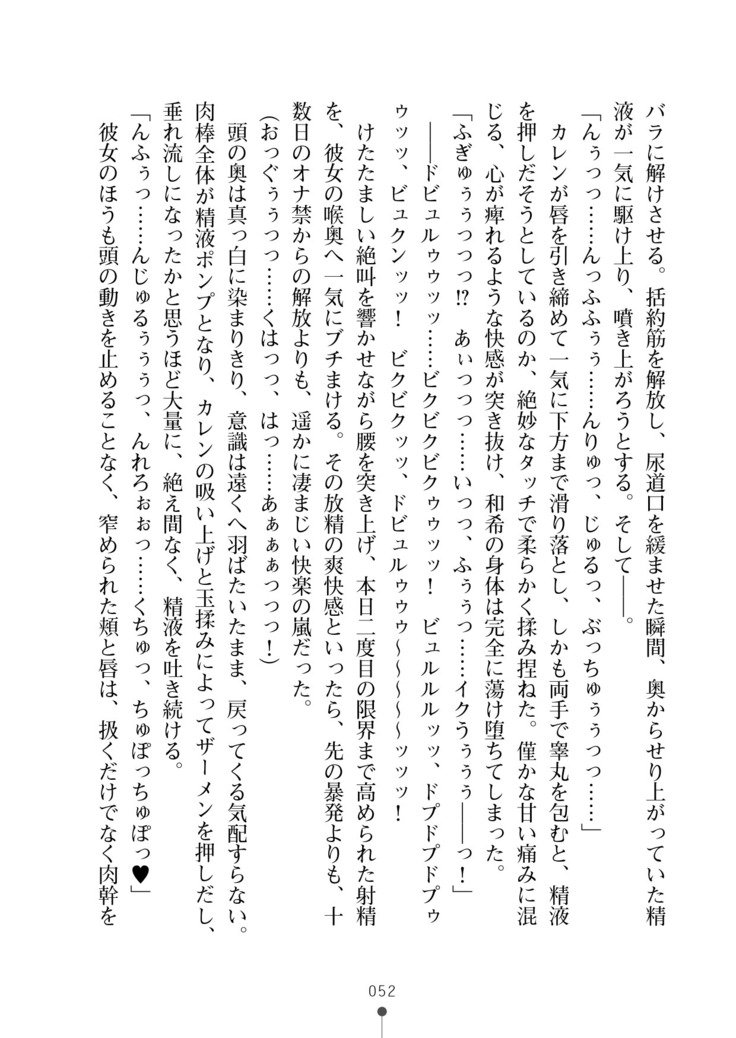 バラに解けさせる。括約筋を解放し、尿道口を緩ませた瞬間、奥からせり上がっていた精
液が一気に駆け上り、噴き上がろうとする。そして――。
「んぅっっ……んっふふぅぅ……んりゅっ、じゅるっ、ぶっちゅぅぅっっ……」
カレンが唇を引き締めて一気に下方まで滑り落とし、しかも両手で睾丸を包むと、精液
を押しだそうとしているのか、絶妙なタッチで柔らかく揉み捏ねた。僅かな甘い痛みに混
じる、心が痺れるような快感が突き抜け、和希の身体は完全に蕩け堕ちてしまった。
「ふぎゅぅぅっっっ!?　あぃっっっ……いっっ、ふぅぅっ……イクうぅぅぅ――っ！」
――ドビュルゥゥッッ……ビクビクビクゥゥッッ！　ビュルルルッッ、ドプドプドプゥ
ゥッッ、ビュクンッッ！　ビクビクッッ、ドビュルゥゥゥ～～～～～ッッッ！
けたたましい絶叫を響かせながら腰を突き上げ、本日二度目の限界まで高められた射精
を、彼女の喉奥へ一気にブチまける。その放精の爽快感といったら、先の暴発よりも、十
数日のオナ禁からの解放よりも、遥かに凄まじい快楽の嵐だった。
（おっぐぅぅっっ……くはっっ、はっ……あぁぁぁっっっ！）
頭の奥は真っ白に染まりきり、意識は遠くへ羽ばたいたまま、戻ってくる気配すらない。
肉棒全体が精液ポンプとなり、カレンの吸い上げと玉揉みによってザーメンを押しだし、
垂れ流しになったかと思うほど大量に、絶え間なく、精液を吐き続ける。
「んふぅっ……んじゅるぅぅぅっ、んれろぉぉっ……くちゅっ、ちゅぽっちゅぽっ♥」
彼女のほうも頭の動きを止めることなく、窄められた頬と唇は、扱くだけでなく肉幹を
052